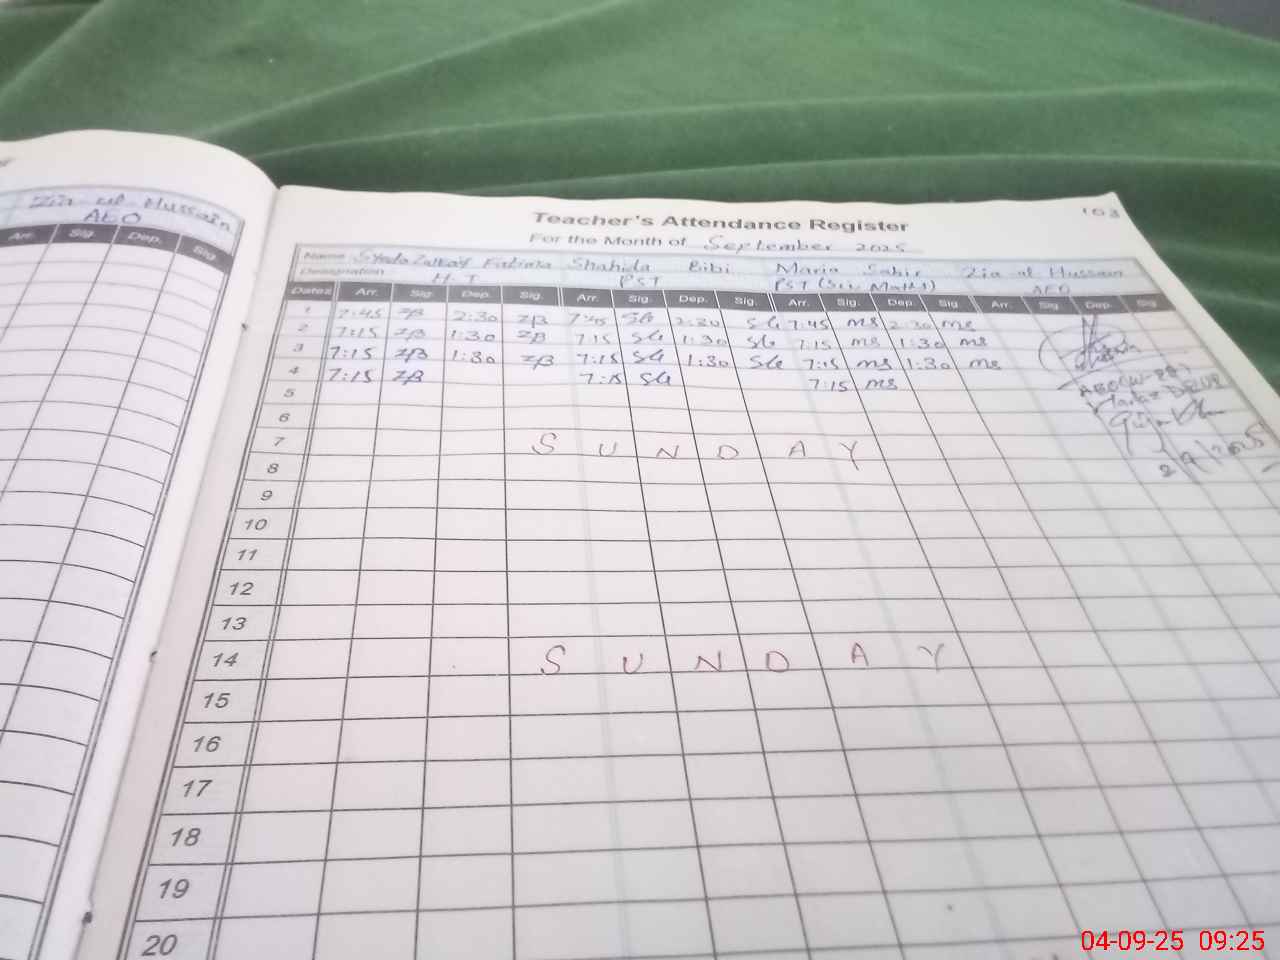 Zia ul Hussain
AEO
Arr. Sig. Dep. Sig.
103
Teacher's Attendance Register
For the Month of September 2025
Name Fatima Shahida Bibi Maria Sabir Zia ul Hussain
Designation H T PST PST (Sci Math) AEO
Dates Arr. Sig. Dep. Sig. Arr. Sig. Dep. Sig. Arr. Sig. Dep. Sig. Arr. Sig. Dep. Sig.
1 7:45 ZB 2:30 ZB 7:45 Sb 2:30 Sb 7:45 ms 2:30 ms
2 7:15 ZB 1:30 ZB 7:15 Sb 1:30 Sb 7:15 ms 1:30 ms
3 7:15 ZB 1:30 ZB 7:15 Sb 1:30 Sb 7:15 ms 1:30 ms
4 7:15 ZB 7:15 Sb 7:15 ms
5
6
7 S U N D A Y
8
9
10
11
12
13
14 S U N D A Y
15
16
17
18
19
20
2/9/2025
04-09-25 09:25